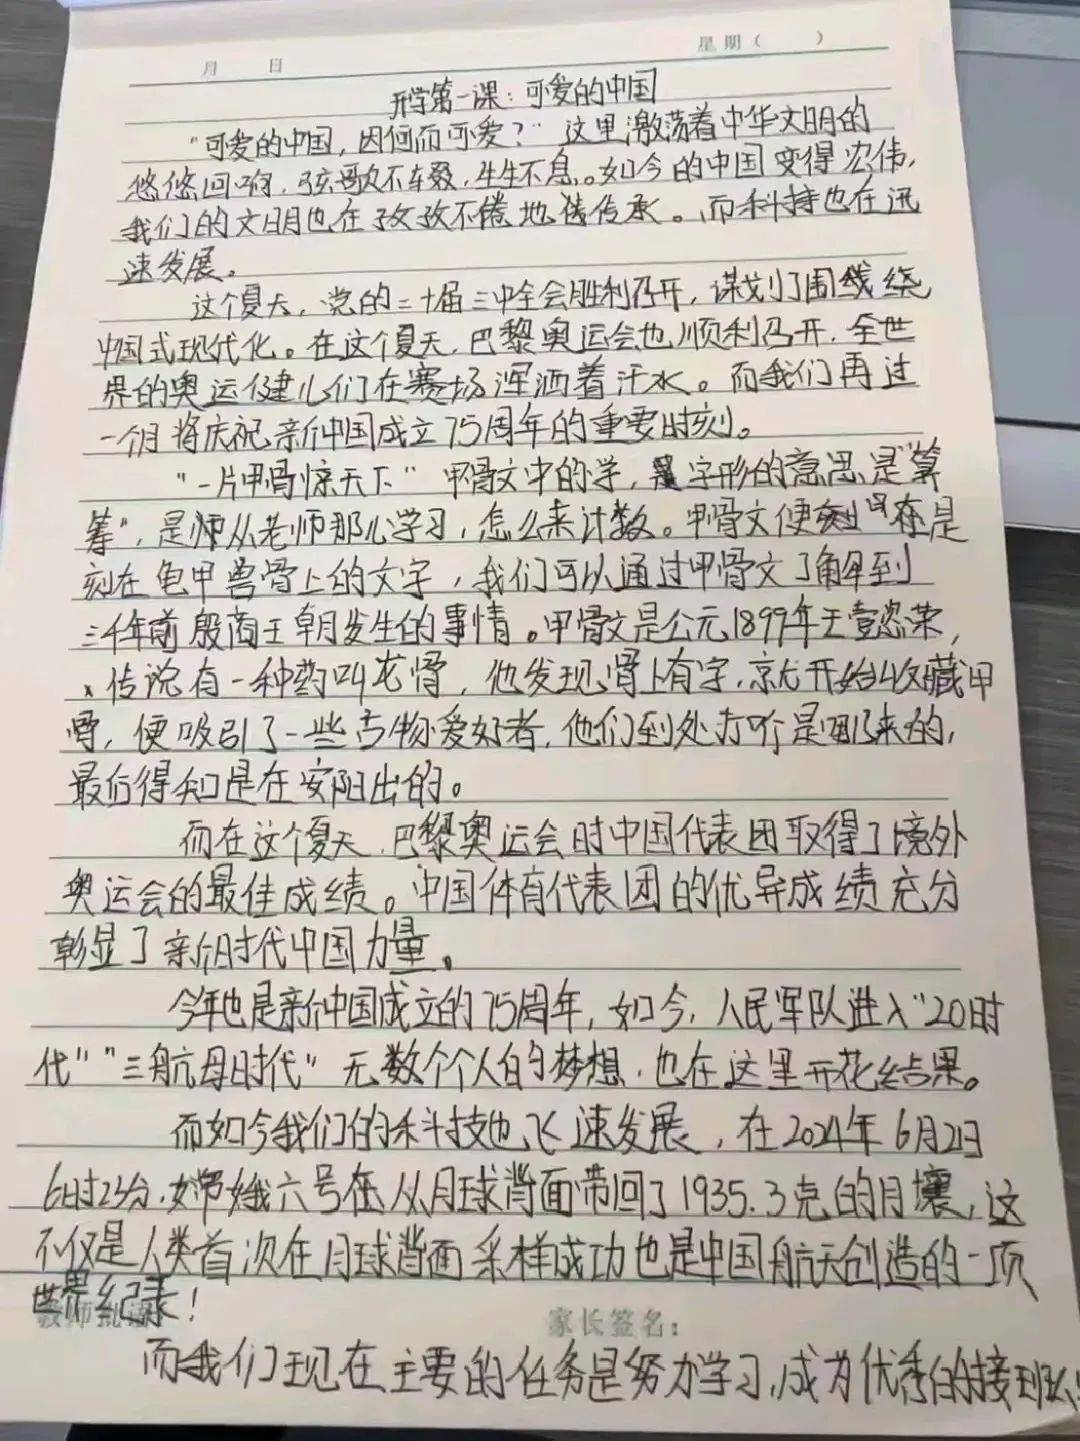 月 日 星期( )
开学第一课:可爱的中国
"可爱的中国,因何而可爱?"这里激荡着中华文明的
悠悠回响,弦歌不辍,生生不息。如今的中国变得宏伟,
我们的文明也在孜孜不倦地传承。而科技也在迅
速发展。
这个夏天,党的二十届三中全会胜利召开,谋划了围绕
中国式现代化。在这个夏天,巴黎奥运会也顺利召开,全世
界的奥运健儿们在赛场挥洒着汗水。而我们再过
一个月将庆祝新中国成立75周年的重要时刻。
"一片甲骨惊天下"甲骨文中的学,字形的意思是"算
筹",是师从老师那儿学习,怎么来计数。甲骨文便是
刻在龟甲兽骨上的文字,我们可以通过甲骨文了解到
三千年前殷商王朝发生的事情。甲骨文是公元1899年王懿荣,
传说有一种药叫龙骨,他发现骨上有字,就开始收藏甲
骨,便吸引了一些古物爱好者,他们到处打听是哪来的,
最后得知是在安阳出的。
而在这个夏天,巴黎奥运会时中国代表团取得了境外
奥运会的最佳成绩。中国体育代表团的优异成绩充分
彰显了新时代中国力量。
今年也是新中国成立的75周年,如今,人民军队进入"20时
代""三航母时代"无数个个人的梦想,也在这里开花结果。
而如今我们的科技也飞速发展,在2024年6月2日
6时23分,嫦娥六号在从月球背面带回了1935.3克的月壤,这
不仅是人类首次在月球背面采样成功也是中国航天创造的一项
世界纪录!
家长签名:
而我们现在主要的任务是努力学习,成为优秀的接班人!